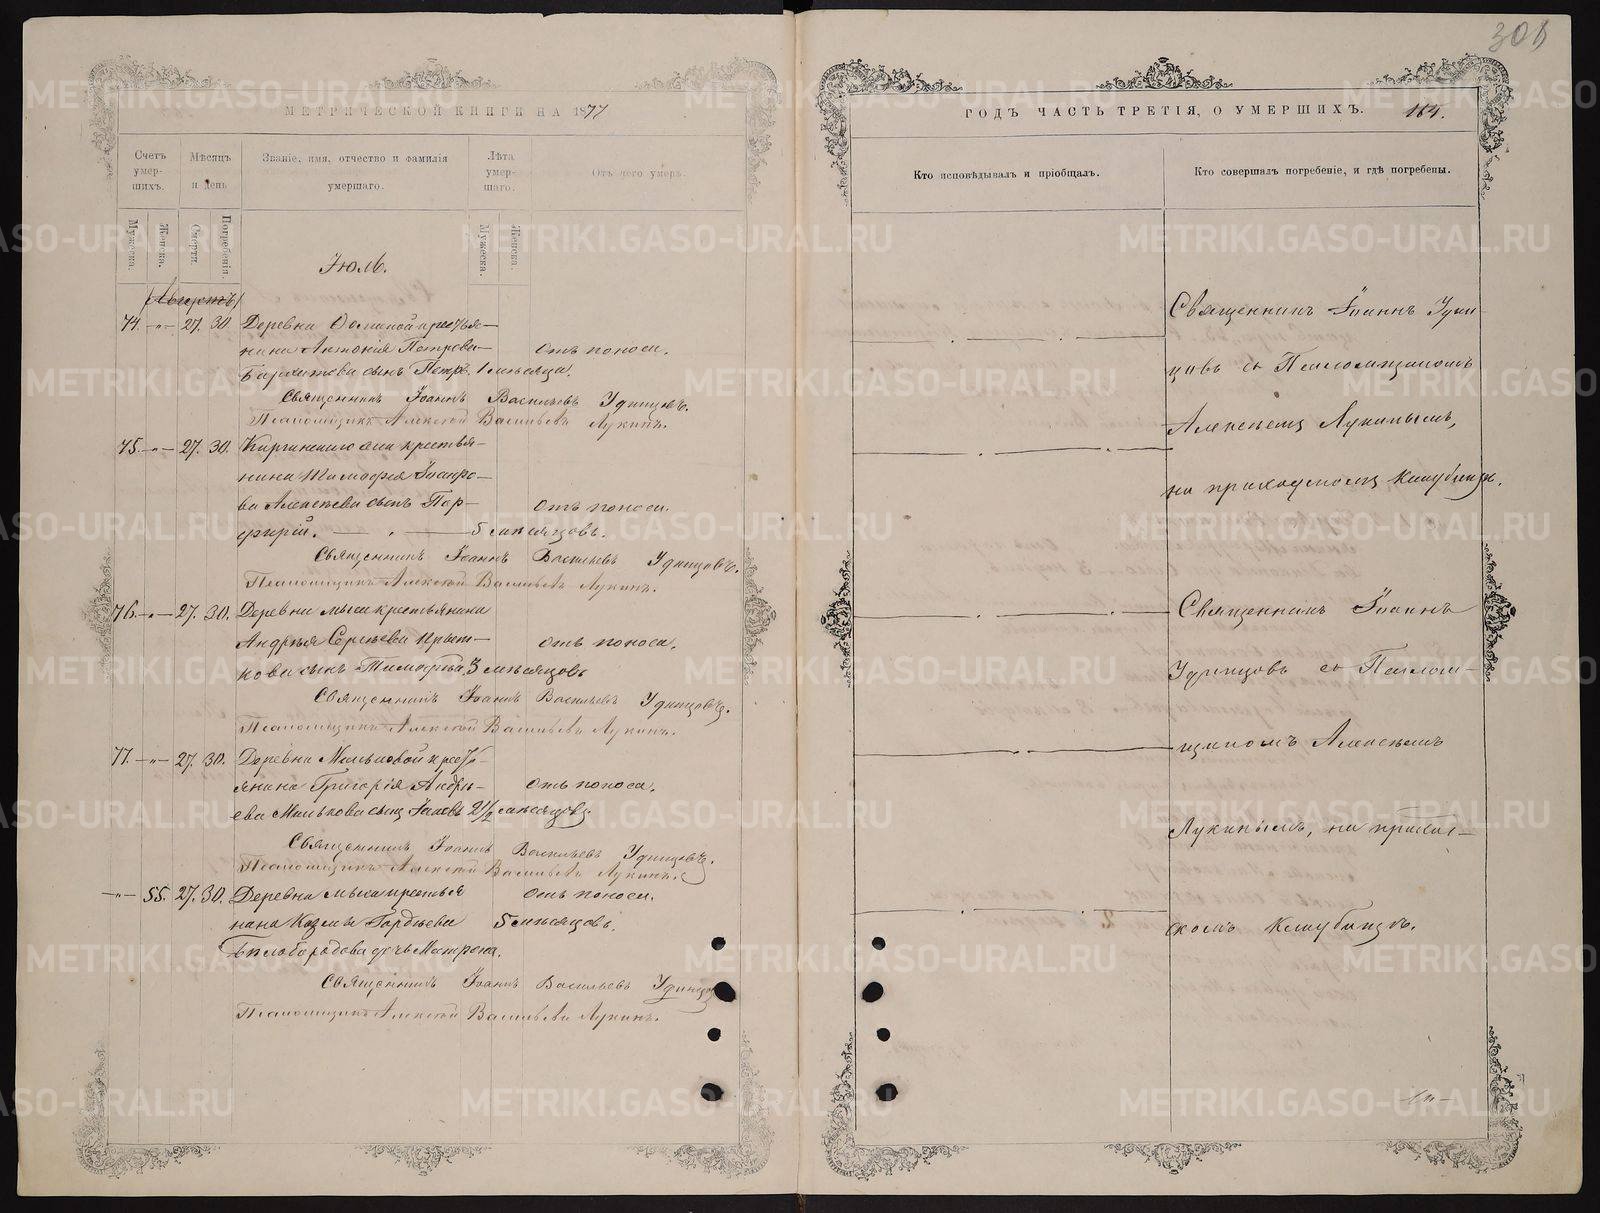 306
МЕТРИЧЕСКОЙ КНИГИ НА 1877
Счетъ умер- шихъ.
Мѣсяцъ и день
Званіе, имя, отчество и фамилія умершаго.
Лѣта умер- шаго.
Отъ чего умеръ.
Мужеска.
Женска.
Смерти.
Погребенія.
Мужеска.
Женска.
Іюль.
(Августъ)
74. — „ — 27. 30. Деревни крестья—
нина Антонія Петрова
сынъ Петръ. 1 мѣсяца. Отъ поноса.
Священникъ Іоаннъ Васильевъ Удинцовъ.
Псаломщикъ Алексѣй Васильевъ Лукинъ.
75. — „ — 27. 30. села крестья—
нина Тимофея
ва Алексѣева сынъ Пор— Отъ поноса.
фирій. — „ — 5 мѣсяцовъ.
Священникъ Іоаннъ Васильевъ Удинцовъ.
Псаломщикъ Алексѣй Васильевъ Лукинъ.
76. — „ — 27. 30. Деревни Мыса крестьянина
Андрея Сергѣева — Отъ поноса.
кова сынъ Тимофей 3 мѣсяцовъ
Священникъ Іоаннъ Васильевъ Удинцовъ.
Псаломщикъ Алексѣй Васильевъ Лукинъ.
77. — „ — 27. 30. Деревни Мальковой крестьян—
янина Григорія Андре— Отъ поноса.
ева Малькова сынъ Іаковъ 2 1/2 мѣсяцовъ.
Священникъ Іоаннъ Васильевъ Удинцовъ.
Псаломщикъ Алексѣй Васильевъ Лукинъ.
— „ — 55. 27. 30. Деревни Мыса крестья Отъ поноса.
нина Козмы Гордѣева 5 мѣсяцовъ.
Бѣлобородова дочь Матрона.
Священникъ Іоаннъ Васильевъ Удинцовъ
Псаломщикъ Алексѣй Васильевъ Лукинъ.
ГОДЪ ЧАСТЬ ТРЕТІЯ, О УМЕРШИХЪ. 164.
Кто исповѣдывалъ и пріобщалъ.
Кто совершалъ погребеніе, и гдѣ погребены.
Священникъ Іоаннъ Удин—
цовъ съ Псаломщикомъ
Алексѣемъ Лукинымъ,
на приходскомъ кладбищѣ.
Священникъ Іоаннъ
Удинцовъ съ Псалом—
щикомъ Алексѣемъ
Лукинымъ, на приход—
скомъ кладбищѣ.
METRIKI.GASO-URAL.RU